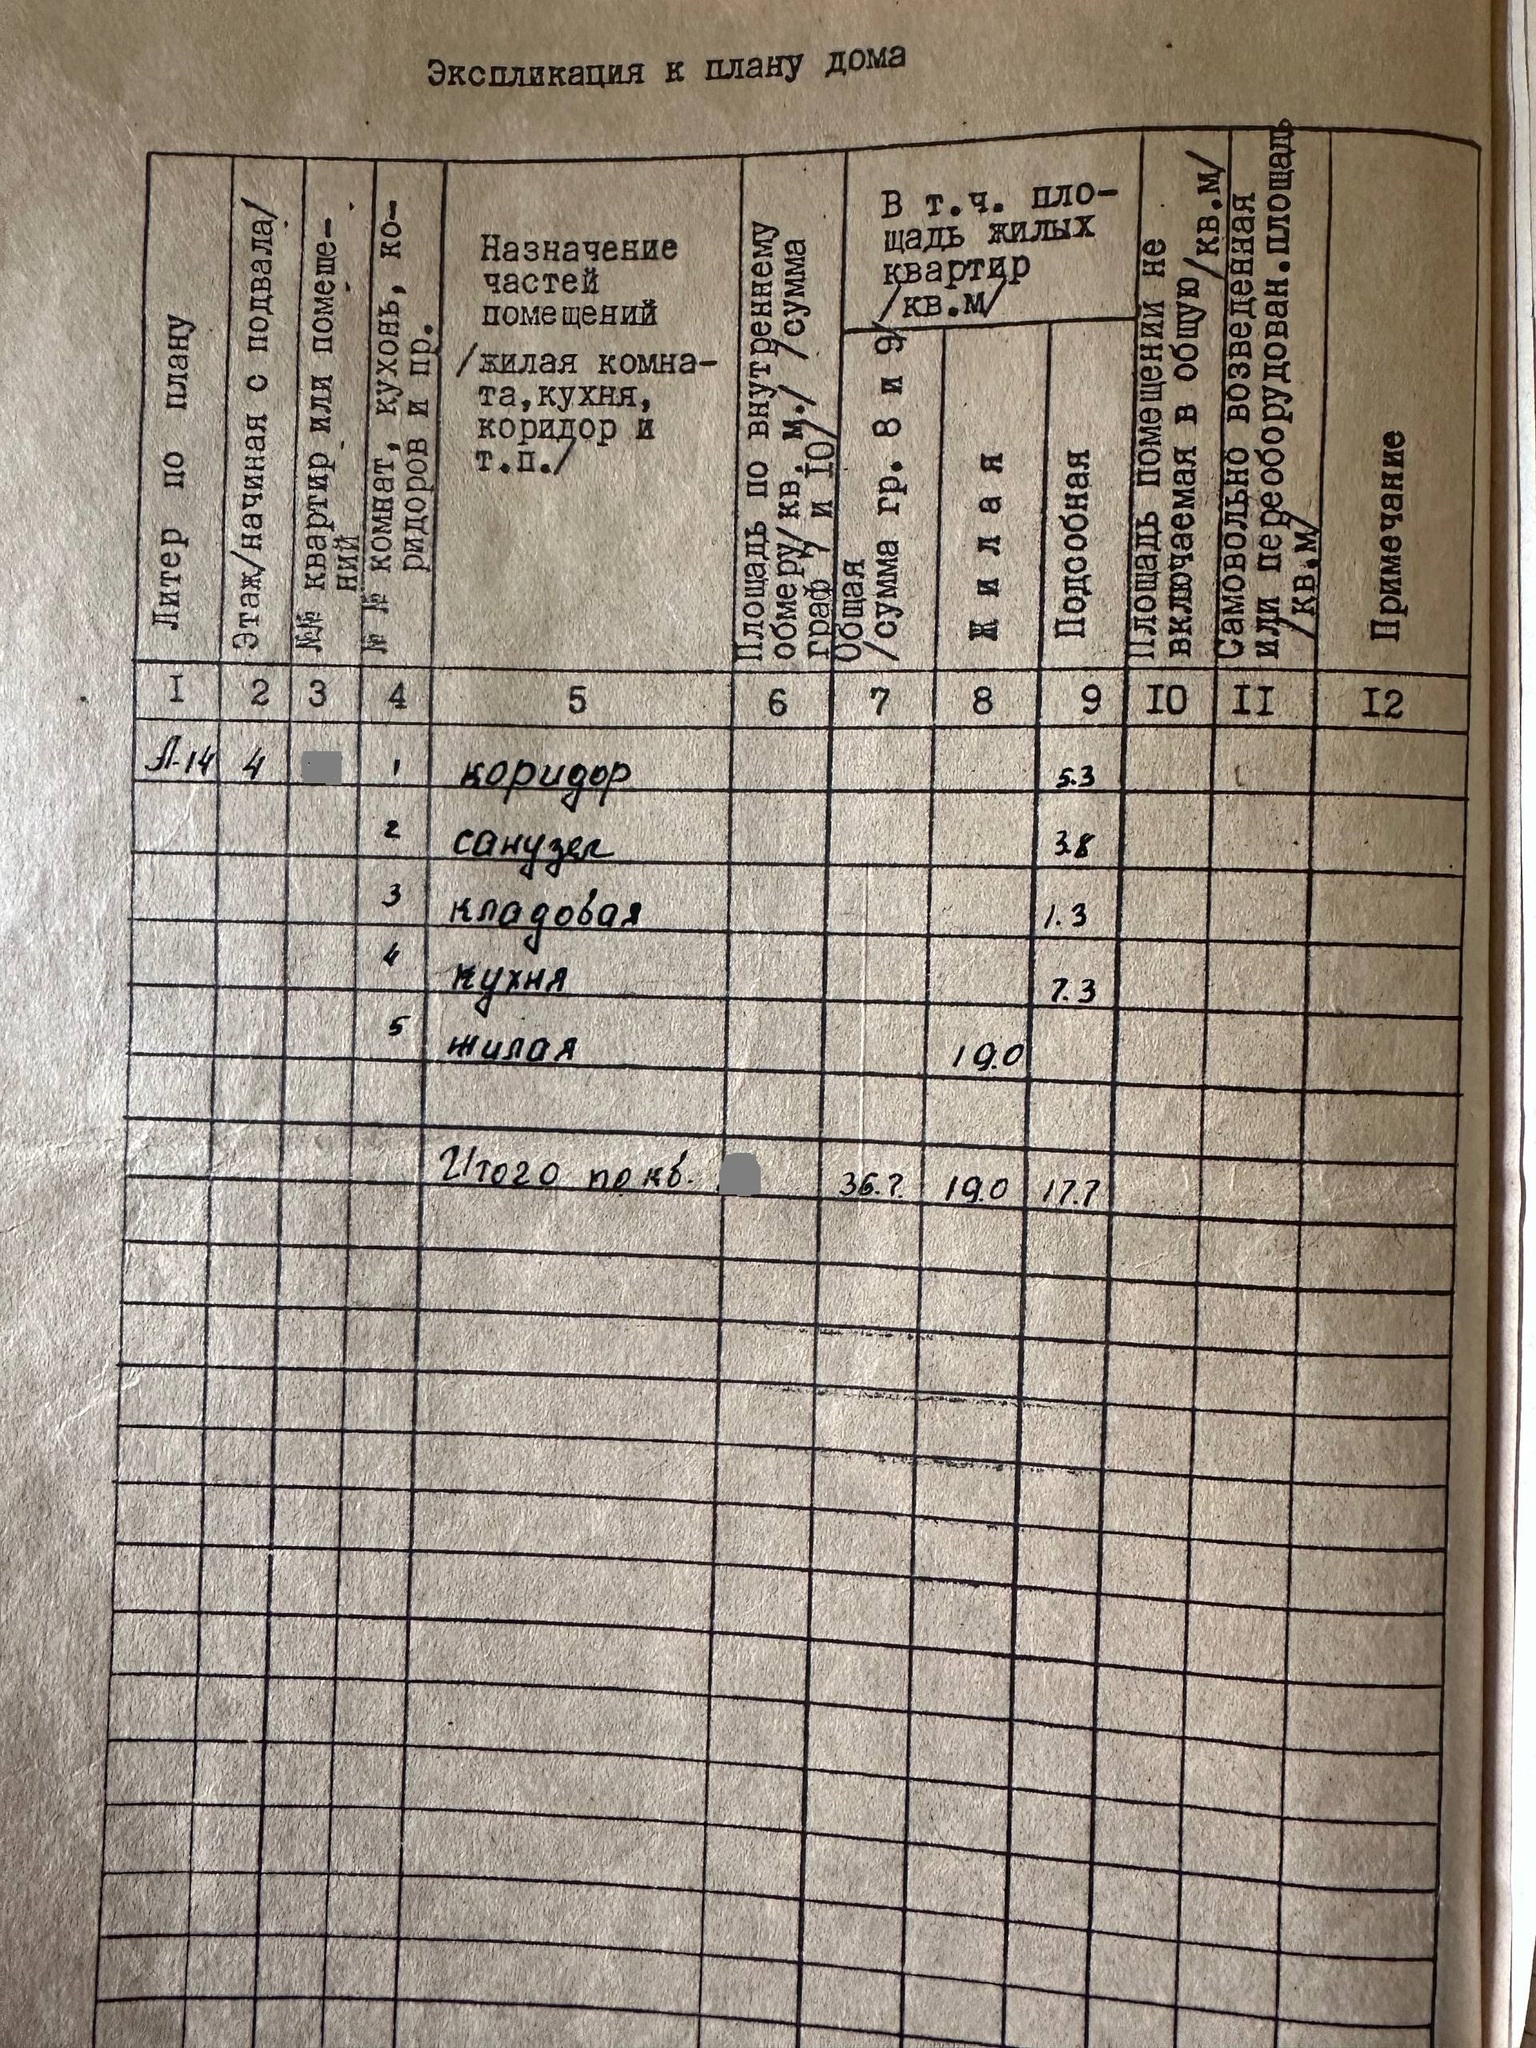 Экспликация к плану дома
Литер по плану
Этаж/начиная с подвала/
№№ квартир или помеще-
ний
№ № комнат, кухонь, ко-
ридоров и пр.
Назначение
частей
помещений
/жилая комна-
та,кухня,
коридор и
т.п./
Площадь по внутреннему
обмеру/кв. м./ /сумма
граф 7 и 10/
В т.ч. пло-
щадь жилых
квартир
/кв.м/
Общая
/сумма гр. 8 и 9/
Жилая
Подсобная
Площадь помещений не
включаемая в общую/кв.м/
Самовольно возведенная
или переоборудован.площадь
/кв.м/
Примечание
I 2 3 4 5 6 7 8 9 IO II I2
А-14 4 1 коридор 5.3
2 санузел 3.8
3 кладовая 1.3
4 кухня 7.3
5 жилая 19.0
Итого по кв. 36.7 19.0 17.7